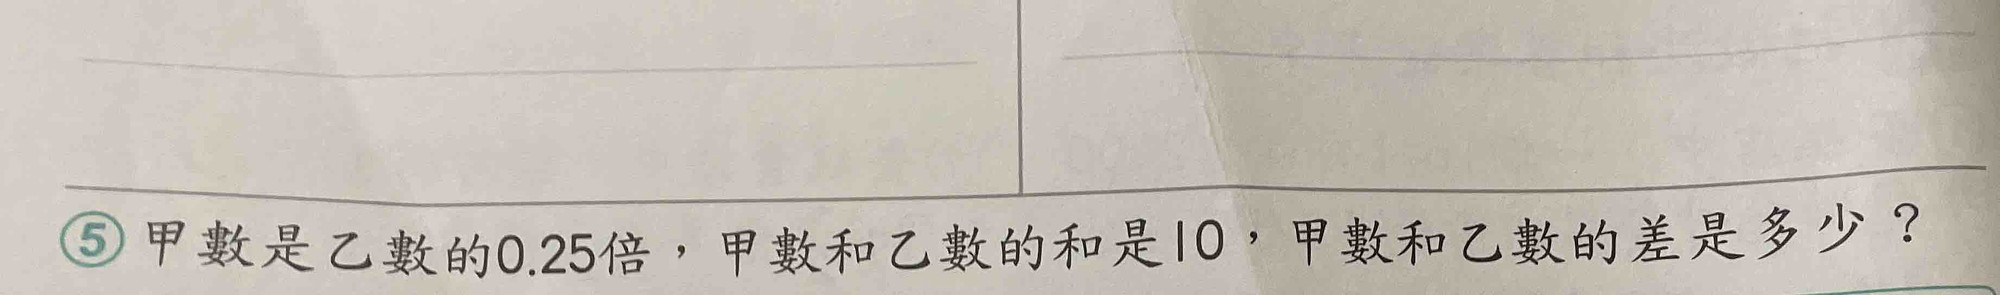 ⑤ 甲數是乙數的0.25倍，甲數和乙數的和是10，甲數和乙數的差是多少？